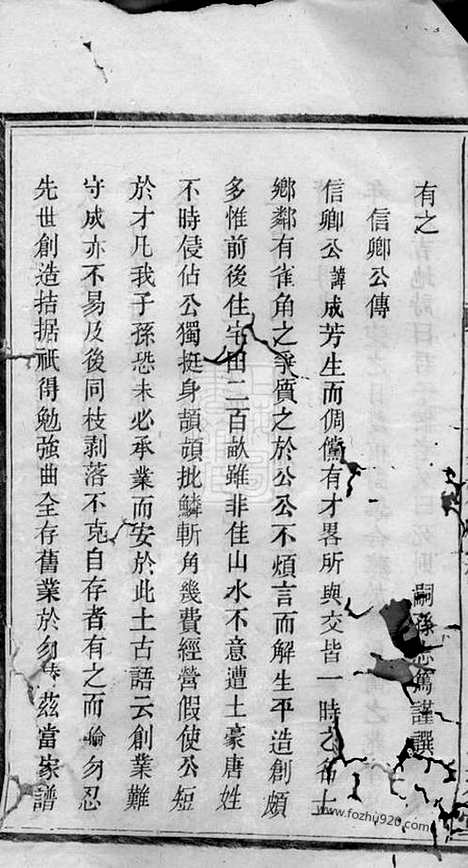 有之
信卿公傳　嗣孫志篤謹譔
信卿公諱成芳生而倜儻有才畧所與交皆一時之名士
鄉鄰有雀角之爭質之於公公不煩言而解生平造創頗
多惟前後住宅田二百畝雖非佳山水不意遭土豪唐姓
不時侵佔公獨挺身頡頏批鱗斬角幾費經營假使公短
於才凡我子孫恐未必承業而安於此土古語云創業難
守成亦不易及後同枝剥落不克自存者有之而婨勿忍
先世創造拮据祇得勉強曲全存舊業於勿替茲當家譜
www.fozhu920.com